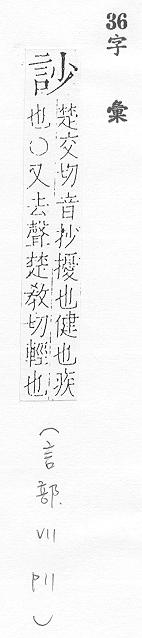 36 字彙
訬
楚交切音抄擾也健也疾
也○又去聲楚敎切輕也
(言部 VII P11)